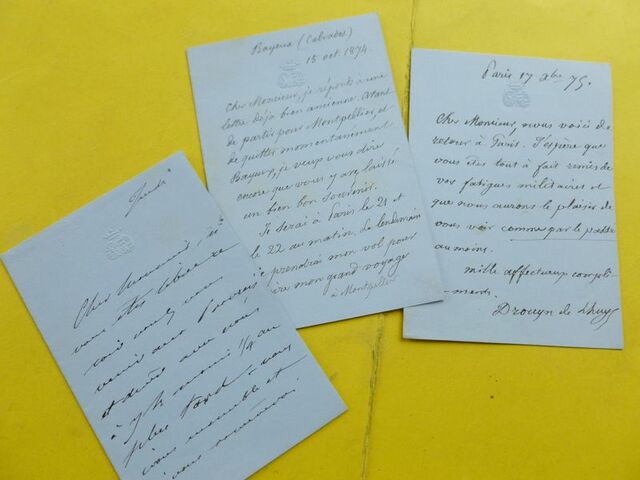 Jeudi
Cher
vous êtes libre ce
soir voulez vous
venir aux français
et dîner avec nous
à 7 h moins 1/4 au
plus tard - vous
ensemble et
Bayeux (Calvados)
15 oct. 1874.
Cher Monsieur, je réponds à une
lettre déjà bien ancienne. Avant
de partir pour Montpellier, et
de quitter momentanément
Bayeux, je veux vous dire
encore que vous y avez laissé
un bien bon souvenir.
Je serai à Paris le 21 et
le 22 au matin. Le lendemain
je prendrai mon vol pour
faire mon grand voyage
à Montpellier
Paris 17 8bre 75.
Cher Monsieur, nous voici de
retour à Paris. J'espère que
vous êtes tout à fait remis de
vos fatigues militaires et
que nous aurons le plaisir de
vous voir comme par le passé
au moins.
mille affectueux compli-
ments.
Drouyn de Lhuys